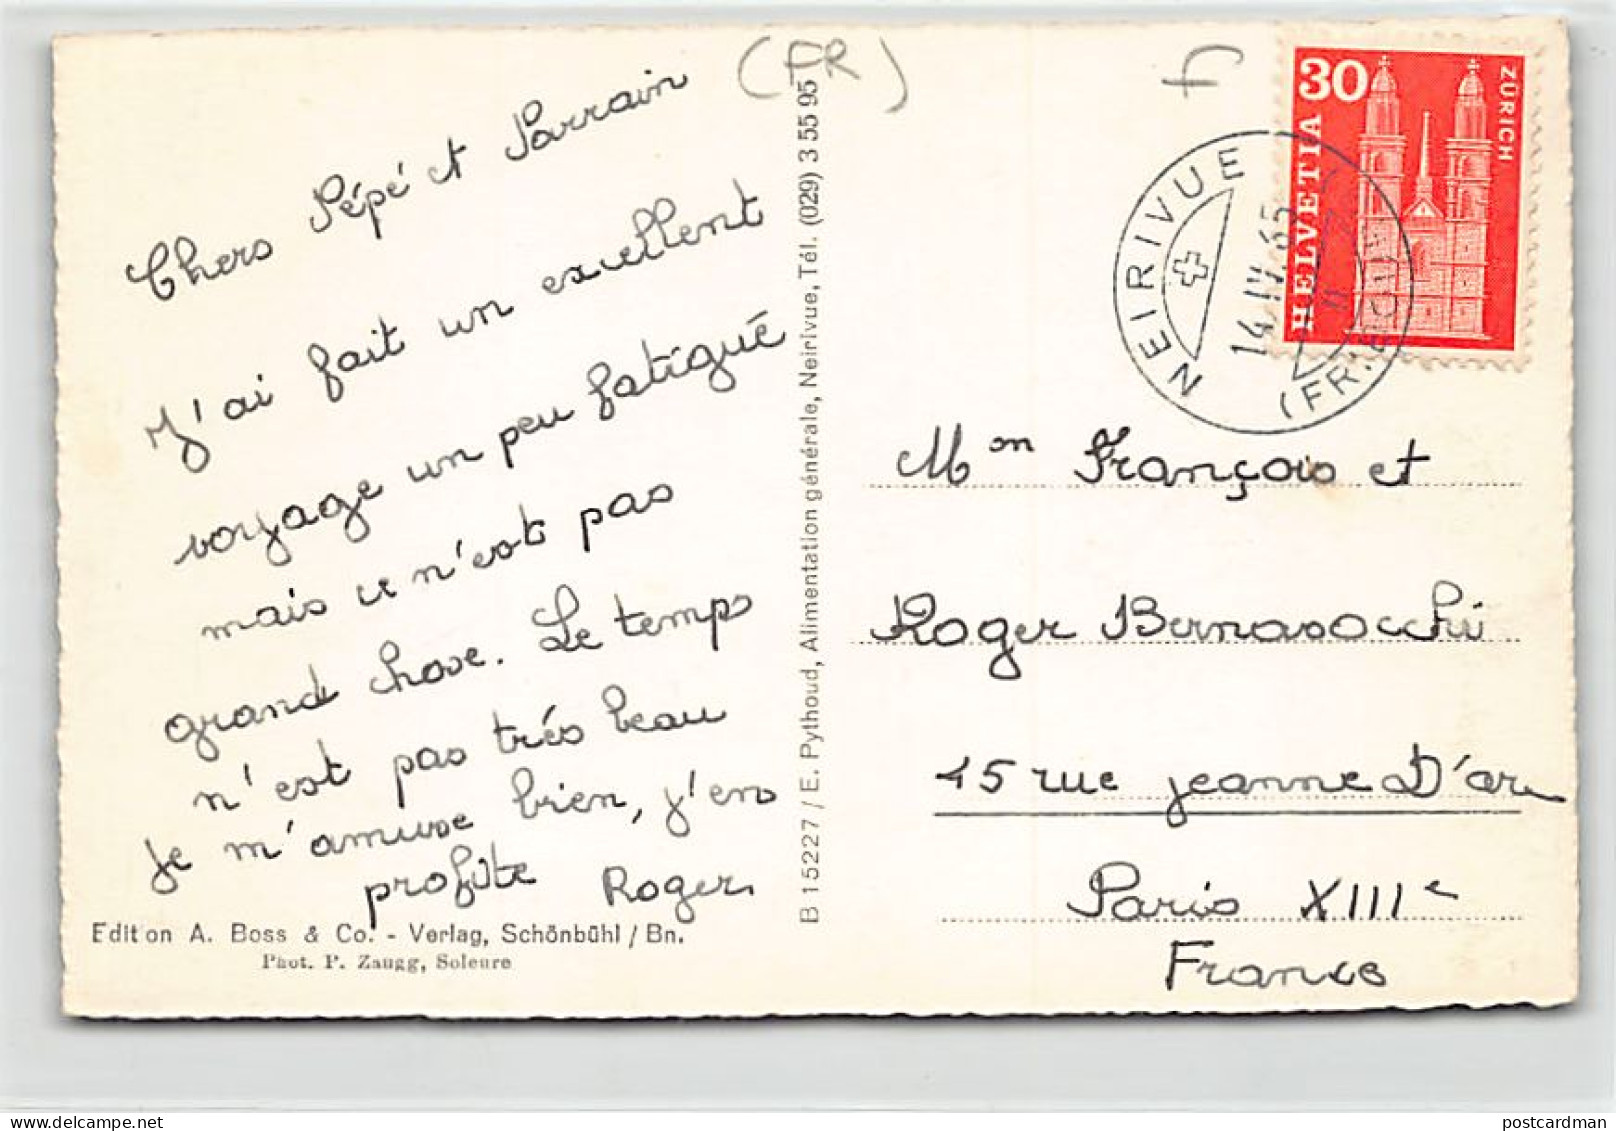 (FR)
Chers Pépé et Parrain
J'ai fait un excellent
voyage un peu fatigué
mais ce n'est pas
grand chose. Le temps
n'est pas trés beau
je m'amuse bien, j'en
profite Roger.
Edition A. Boss & Co. - Verlag, Schönbühl / Bn.
Phot. P. Zaugg, Soleure
B 15227 / E. Pythoud, Alimentation générale, Neirivue, Tél. (029) 3 55 95
30
HELVETIA
ZÜRICH
NEIRIVUE
14.IV.65
(FRIBOURG)
Mon François et
Roger Bernasocchi
45 rue jeanne D'arc
Paris XIIIe
France
postcardman